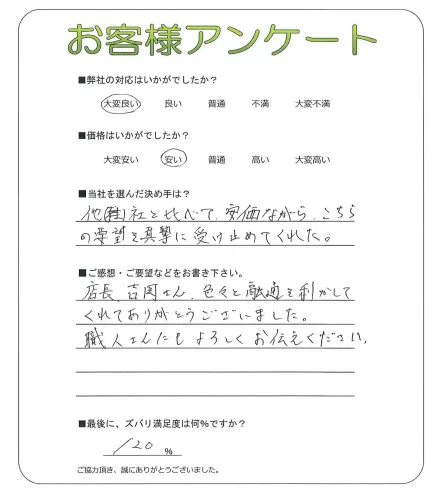 お客様アンケート
■弊社の対応はいかがでしたか?
大変良い 良い 普通 不満 大変不満
■価格はいかがでしたか?
大変安い 安い 普通 高い 大変高い
■当社を選んだ決め手は?
他社と比べて、安価ながら、こちら
の要望を真摯に受け止めてくれた。
■ご感想・ご要望などをお書き下さい。
店長、吉岡さん、色々と融通を利かして
くれてありがとうございました。
職人さんにもよろしくお伝えください。
■最後に、ズバリ満足度は何%ですか?
120 %
ご協力頂き、誠にありがとうございました。